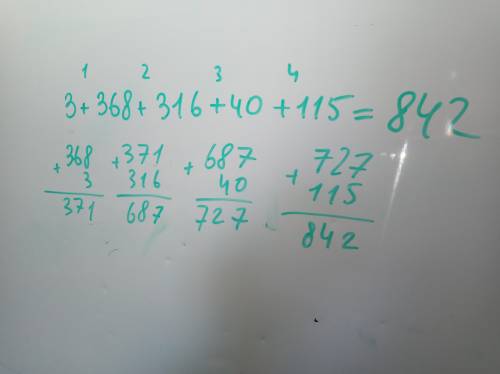 1 2 3 4
3+368+316+40+115=842
368 +371 +687 +727
+ 3 316 40 115
371 687 727 842